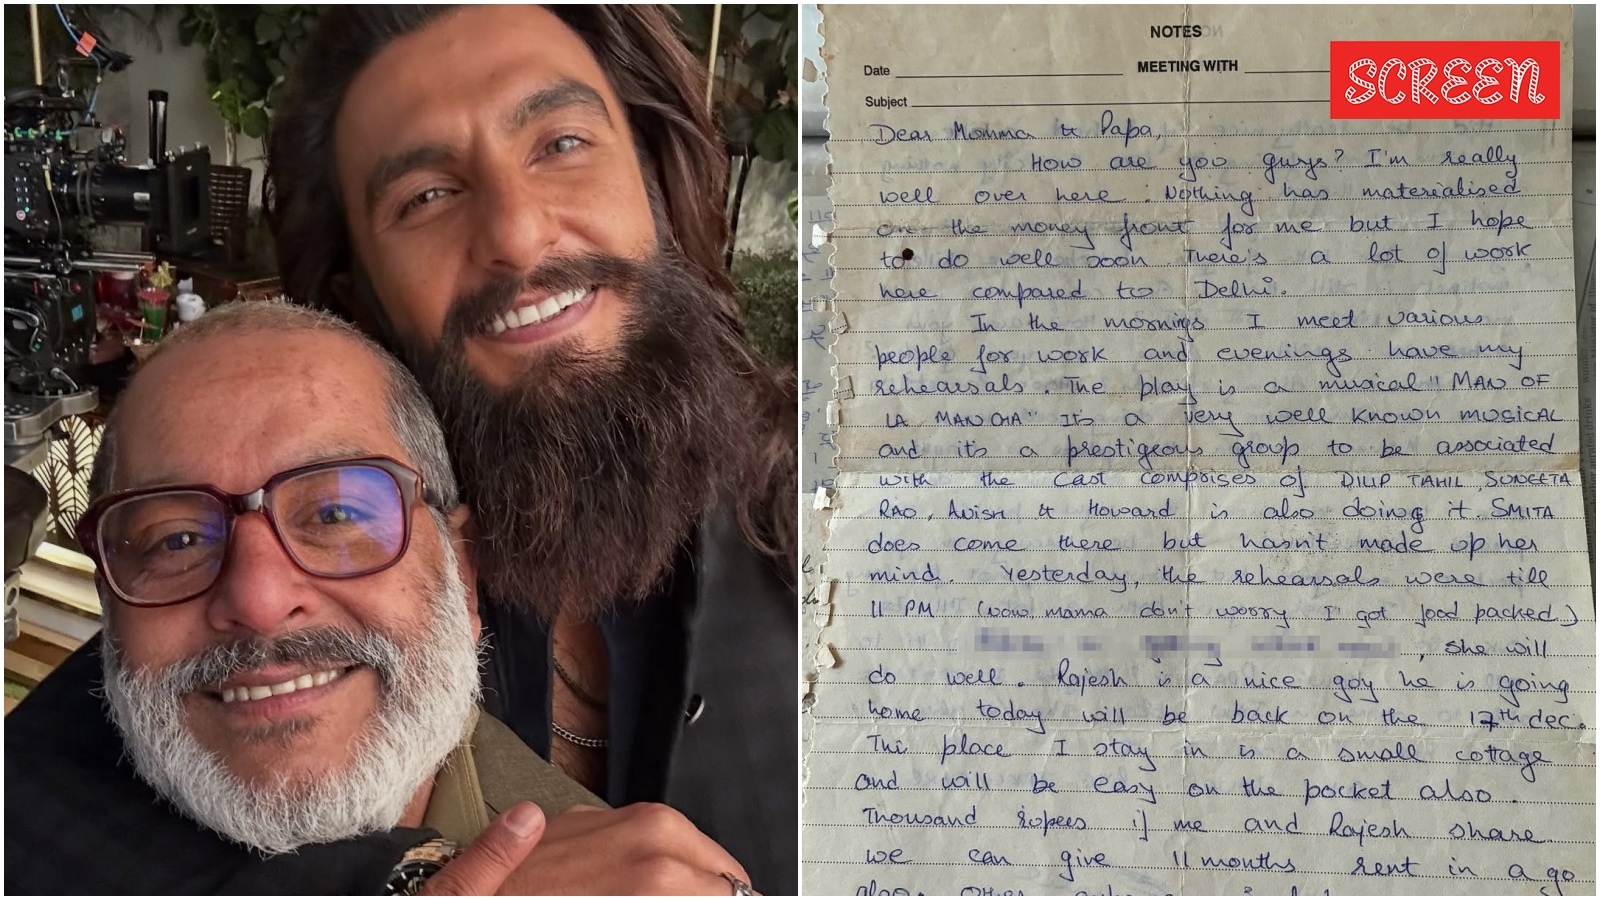 NOTES
SCREEN
Date
MEETING WITH
Subject
Dear Momma & Papa,
How are you guys? I'm really
well over here. Nothing has materialised
on the money front for me but I hope
to do well soon There's a lot of work
here compared to Delhi.
In the mornings I meet various
people for work and evenings have my
rehearsals. The play is a musical "MAN OF
LA MANCHA" Its a very well known musical
and its a prestigeous group to be associated
with the Cast comprises of DILIP TAHIL, SUNEETA
RAO, Avish & Howard is also doing it. SMITA
does come there but hasn't made up her
mind. Yesterday, the rehearsals were till
11 PM (wow, mama don't worry I got food packed)
, she will
do well. Rajesh is a nice guy he is going
home today will be back on the 17th dec.
The place I stay in is a small cottage
and will be easy on the pocket also.
Thousand rupees if me and Rajesh share
we can give 11 months rent in a go
also. Other